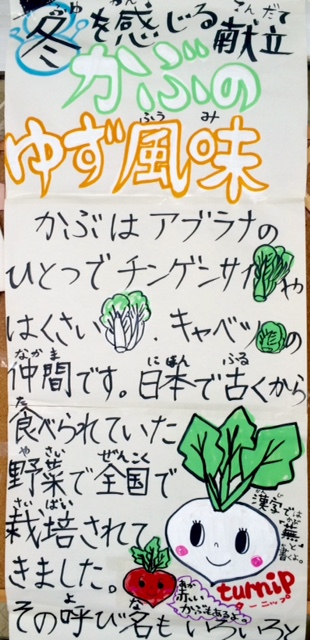 冬を感じる献立
かぶの
ゆず風味
かぶはアブラナの
ひとつでチンゲンサイや
はくさい、キャベツの
仲間です。日本で古くから
食べられていた
野菜で全国で
栽培されて
きました。
その呼び名もいろいろと
漢字では
蕪と
書くよ。
赤い
かぶもあるよ。
turnip
ターニップ